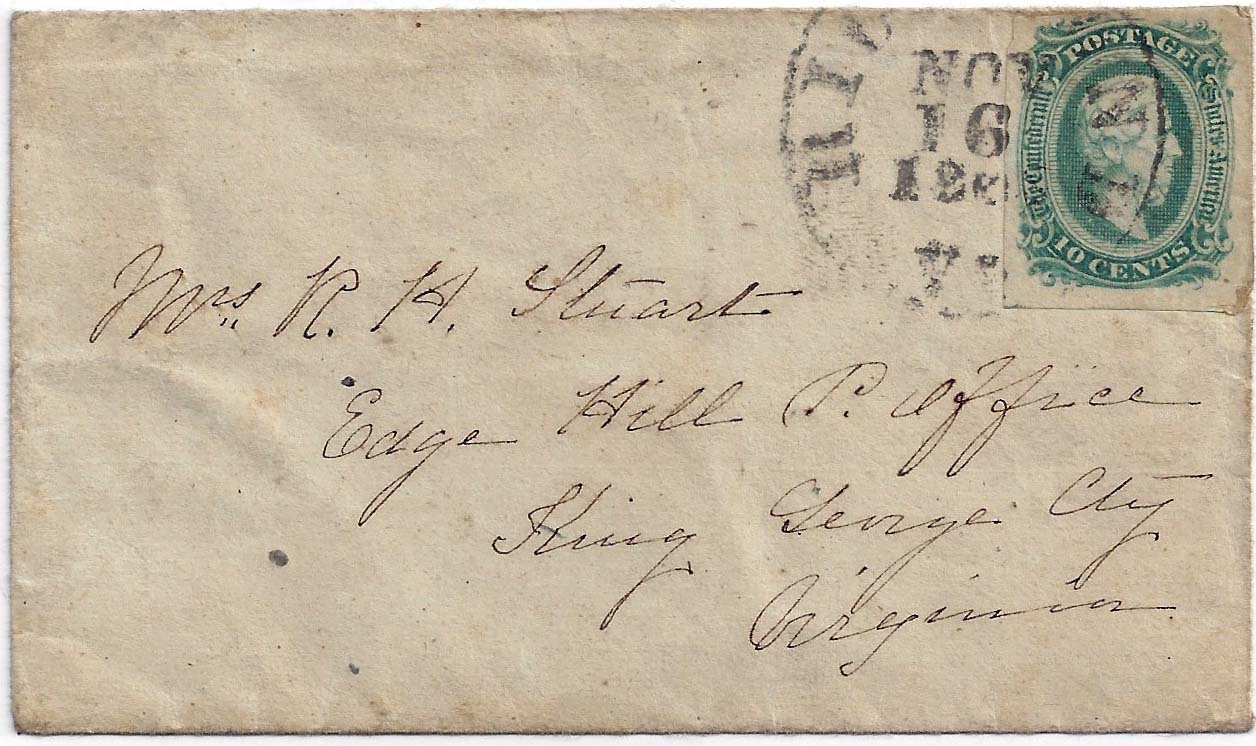 NOV
16
POSTAGE
The Confederate States America
10 CENTS
Mrs. R. H. Stuart
Edge Hill P. Office
King George Cty
Virginia